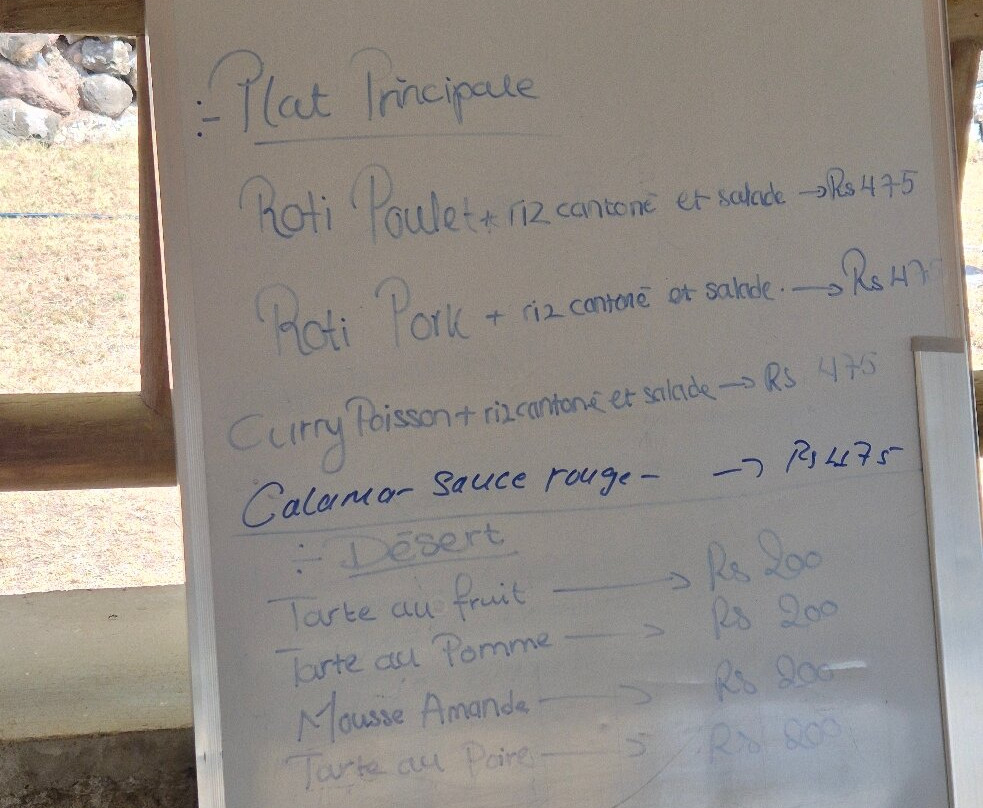 :- Plat Principale
Roti Poulet + riz cantoné et salade → Rs 475
Roti Pork + riz cantoné et salade. → Rs 475
Curry Poisson + riz cantoné et salade → Rs 475
Calamar Sauce rouge - → Rs 475
:- Désert
Tarte au fruit → Rs 200
Tarte au Pomme → Rs 200
Mousse Amande → Rs 200
Tarte au Poire → Rs 200